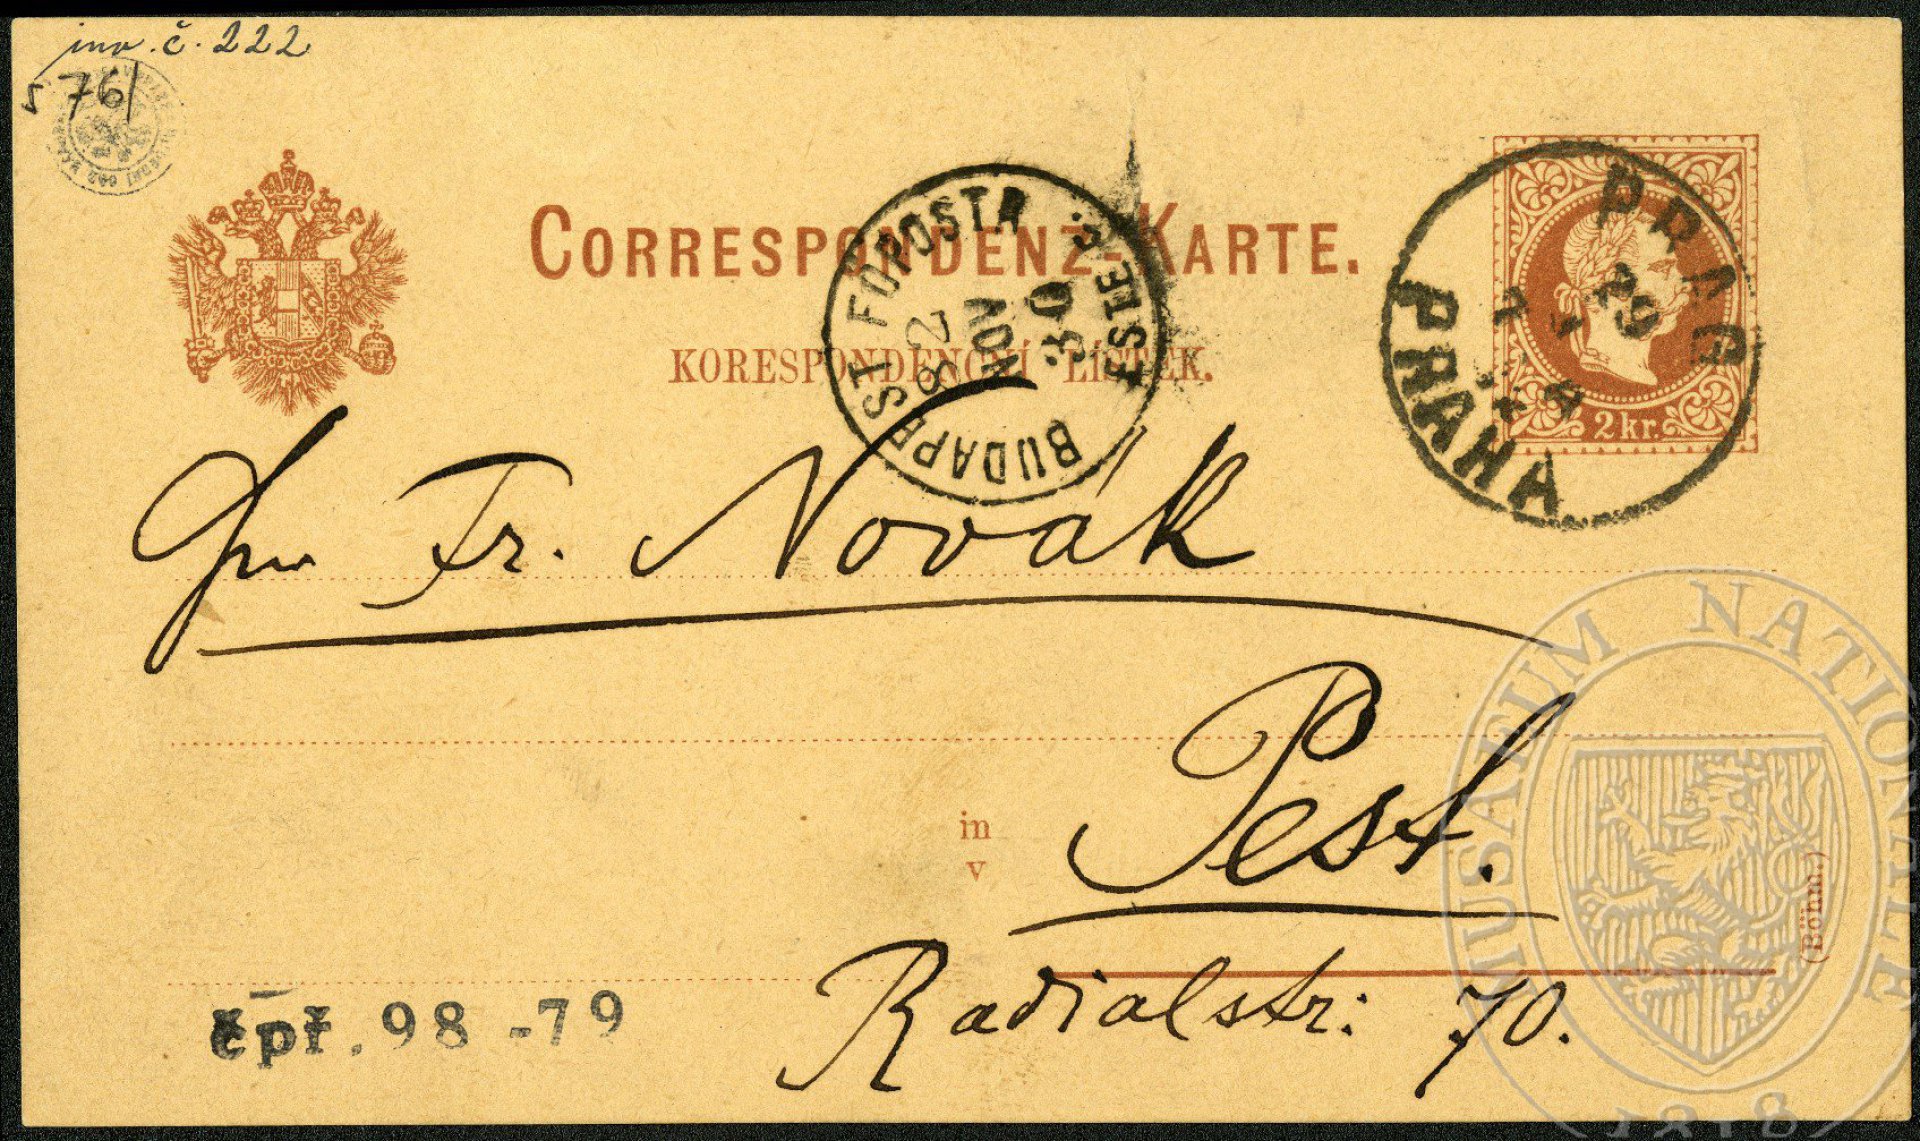 inv. č. 222
s 76/
CORRESPONDENZ-KARTE.
KORESPONDENČNÍ LÍSTEK.
BUDAPEST FŐPOSTA
82
NOV
30
ESTE
PRAG
PRAHA
29
2 kr.
Fr. Novák
in
v
Pest.
Radialstr: 70.
(Böhm.)
čpř. 98 -79
MUSAEUM NATIONALE
1818